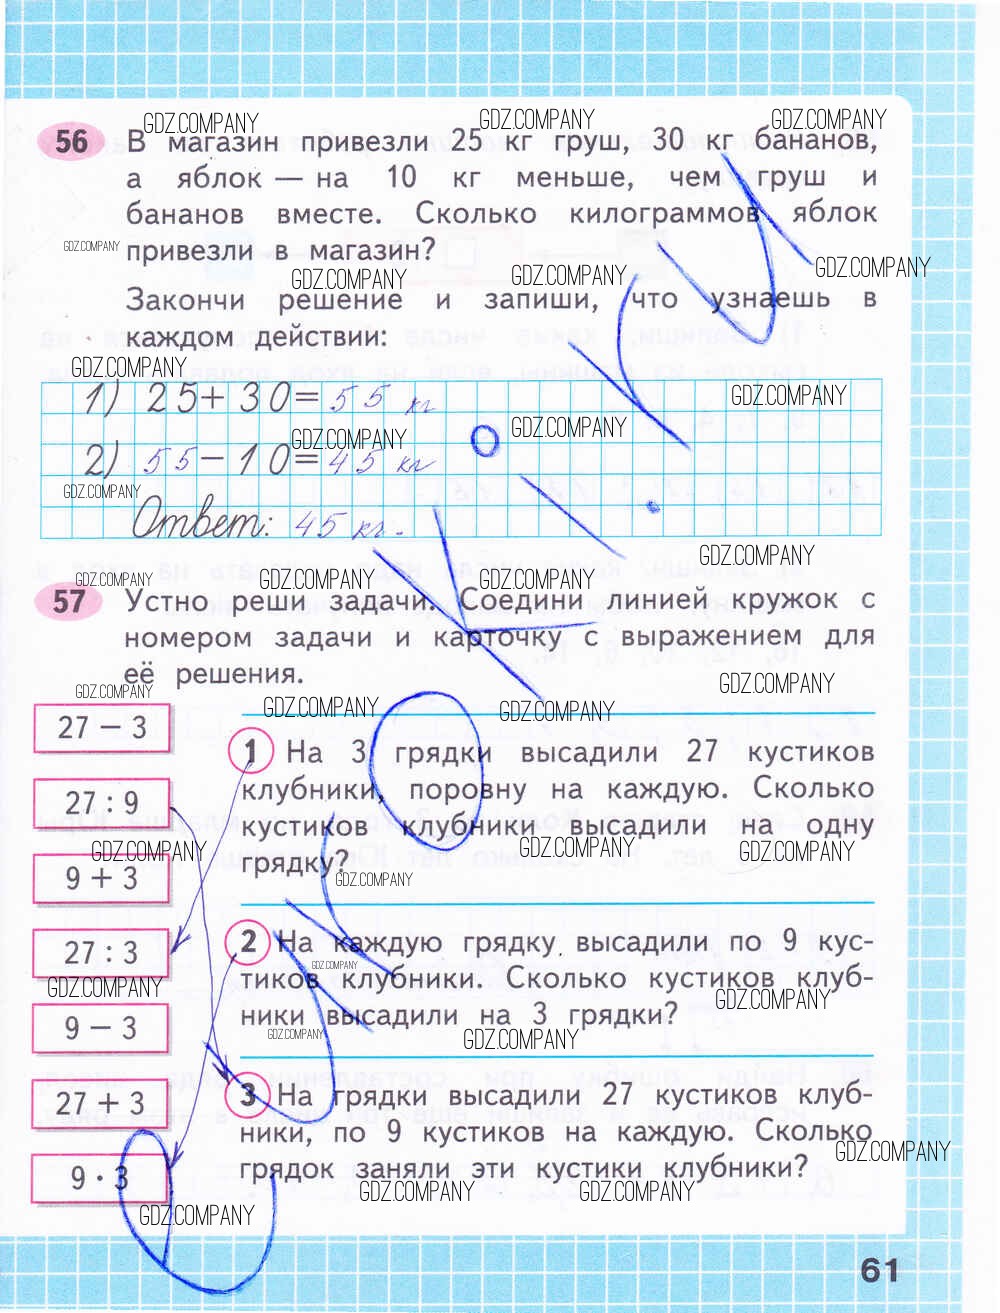 GDZ.COMPANY GDZ.COMPANY GDZ.COMPANY
56 В магазин привезли 25 кг груш, 30 кг бананов,
а яблок — на 10 кг меньше, чем груш и
бананов вместе. Сколько килограммов яблок
GDZ.COMPANY привезли в магазин?
GDZ.COMPANY GDZ.COMPANY GDZ.COMPANY
Закончи решение и запиши, что узнаешь в
каждом действии:
GDZ.COMPANY
1) 25+30=55 кг
GDZ.COMPANY
GDZ.COMPANY GDZ.COMPANY
2) 55-10=45 кг
GDZ.COMPANY
Ответ: 45 кг.
GDZ.COMPANY
GDZ.COMPANY GDZ.COMPANY GDZ.COMPANY
57 Устно реши задачи. Соедини линией кружок с
номером задачи и карточку с выражением для
её решения.
GDZ.COMPANY GDZ.COMPANY
GDZ.COMPANY GDZ.COMPANY
27 − 3
27 : 9
9 + 3
27 : 3
9 − 3
27 + 3
9 · 3
1 На 3 грядки высадили 27 кустиков
клубники, поровну на каждую. Сколько
кустиков клубники высадили на одну
GDZ.COMPANY GDZ.COMPANY GDZ.COMPANY
грядку?
GDZ.COMPANY
2 На каждую грядку высадили по 9 кус-
GDZ.COMPANY
тиков клубники. Сколько кустиков клуб-
GDZ.COMPANY GDZ.COMPANY
ники высадили на 3 грядки?
GDZ.COMPANY GDZ.COMPANY
3 На грядки высадили 27 кустиков клуб-
ники, по 9 кустиков на каждую. Сколько
GDZ.COMPANY
грядок заняли эти кустики клубники?
GDZ.COMPANY GDZ.COMPANY
GDZ.COMPANY
61